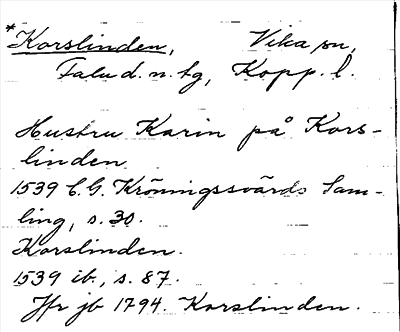 *Korslinden, Vika sn,
Falu d. n. tg, Kopp. l.
Hustru Karin på Kors-
linden
1539 C.G. Kröningssvärds Sam-
ling, s. 30.
Korslinden.
1539 ib., s. 87.
Jfr jb 1794. Korslinden.